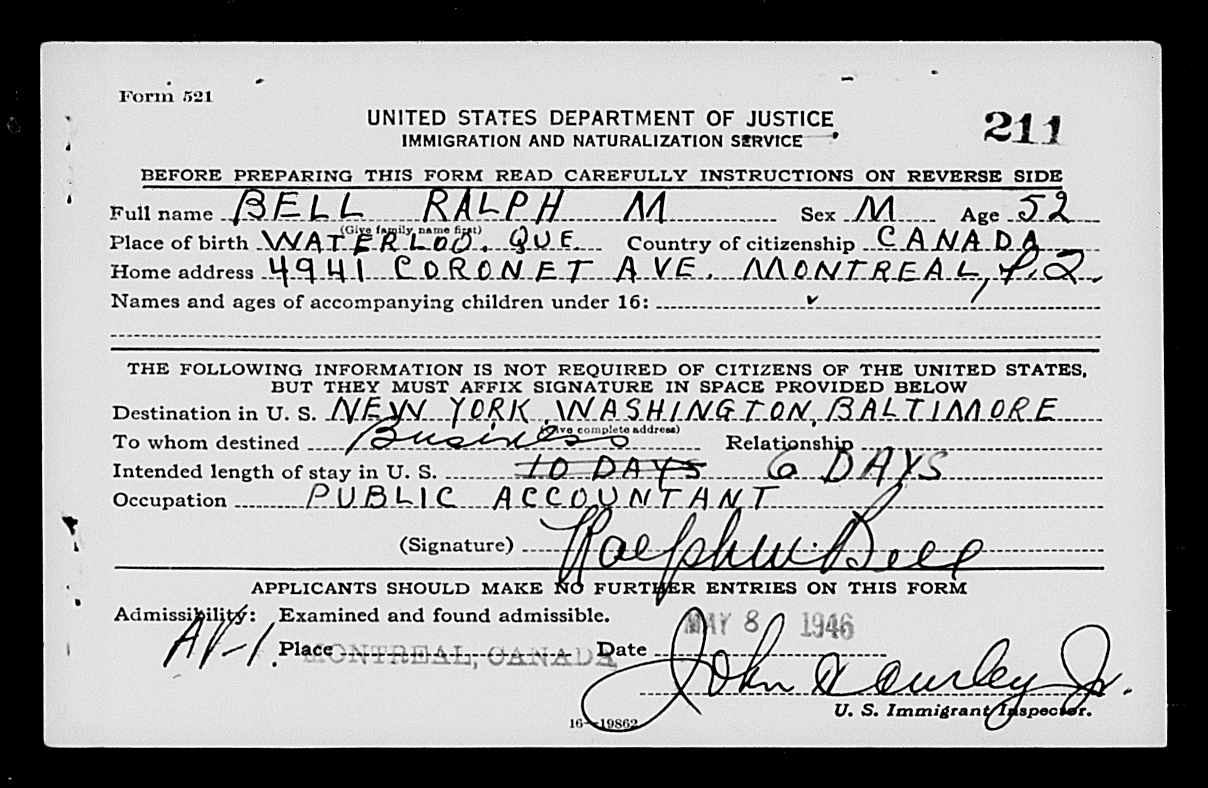 Form 521
UNITED STATES DEPARTMENT OF JUSTICE
IMMIGRATION AND NATURALIZATION SERVICE
211
BEFORE PREPARING THIS FORM READ CAREFULLY INSTRUCTIONS ON REVERSE SIDE
Full name BELL RALPH M Sex M Age 52
(Give family name first)
Place of birth WATERLOO, QUE. Country of citizenship CANADA
Home address 4941 CORONET AVE. MONTREAL, P.Q.
Names and ages of accompanying children under 16:
THE FOLLOWING INFORMATION IS NOT REQUIRED OF CITIZENS OF THE UNITED STATES,
BUT THEY MUST AFFIX SIGNATURE IN SPACE PROVIDED BELOW
Destination in U. S. NEW YORK, WASHINGTON, BALTIMORE
(Give complete address)
To whom destined Business Relationship
Intended length of stay in U. S. 10 DAYS 6 DAYS
Occupation PUBLIC ACCOUNTANT
(Signature) Ralph M. Bell
APPLICANTS SHOULD MAKE NO FURTHER ENTRIES ON THIS FORM
Admissibility: Examined and found admissible.
MAY 8 1946
Place MONTREAL, CANADA Date
John Jr.
U. S. Immigrant Inspector.
16—19862